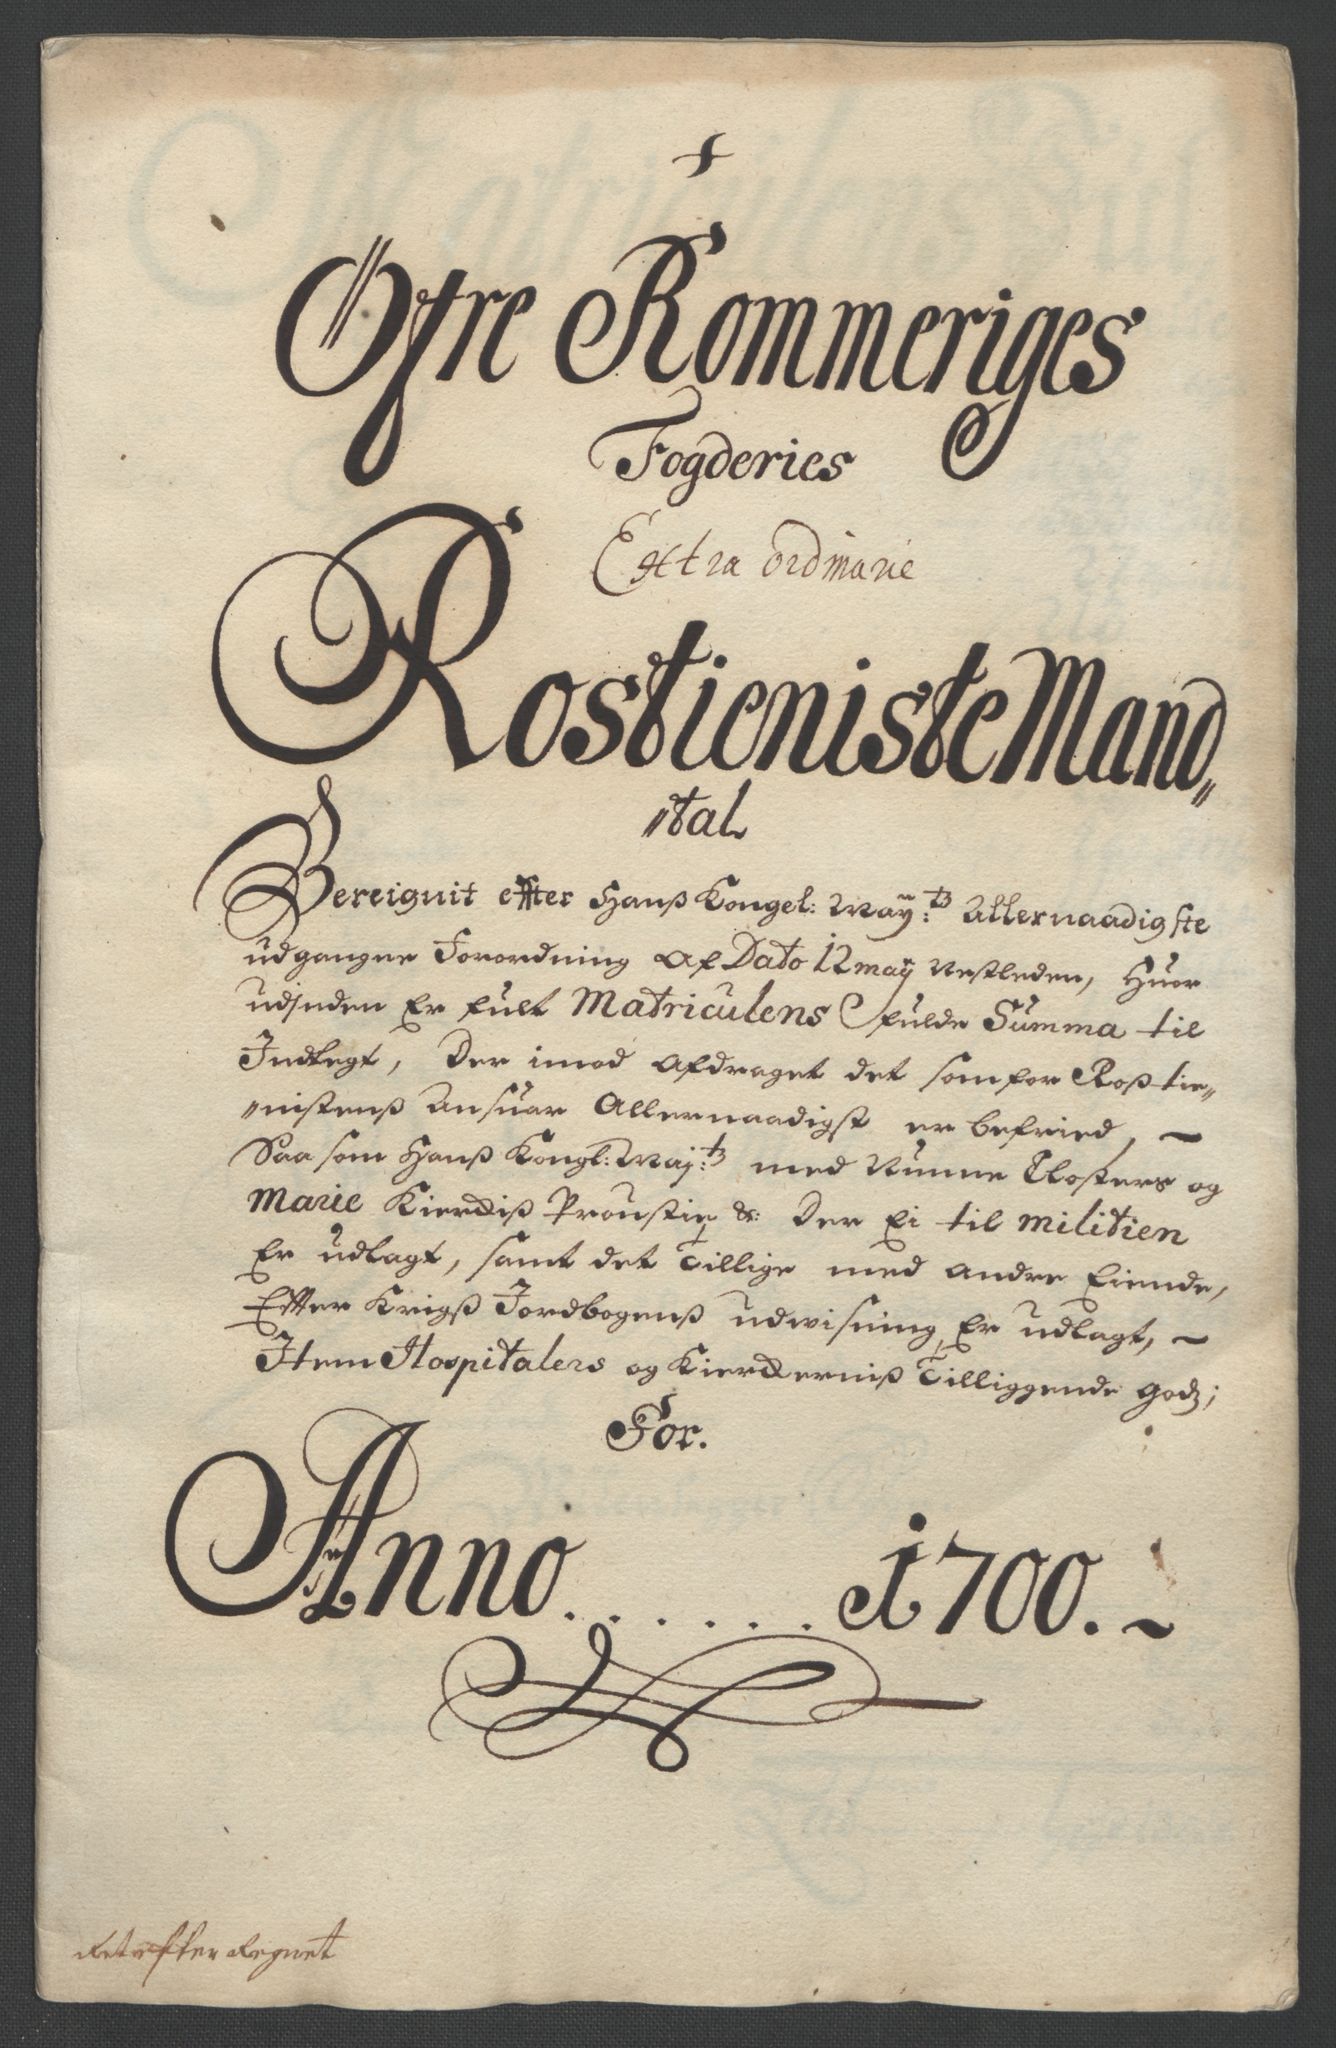 Øfre Rommeriges
Fogderies
Extra ordinarie
Rostieniste Mand„
„tal
Bereignit effter Hanß Kongel: Mayᵗˢ Allernaadigste
udgangne Forordning Af Dato 12 may Nestleden, Huor
udinden Er fult Matriculens fulde Summa til
Indlegt, Der imod Afdraget det som for Roß tie„
„nistenß Ansuar Allernaadigst er befried, ~
Saa som Hanß Kongl: Majᵗˢ med Nunne Closters og
Marie Kierkiß Proustie &: Der Ei til militien
Er udlagt, samt det Tillige med andre Eiende,
Effter Krigß Jordbogenß udwisning Er udlagt, ~
Item Hospitalers og Kierkerniß Tilliggende godz;
For.
Anno . . . . . . 1700. ~
Ret effter Regnet